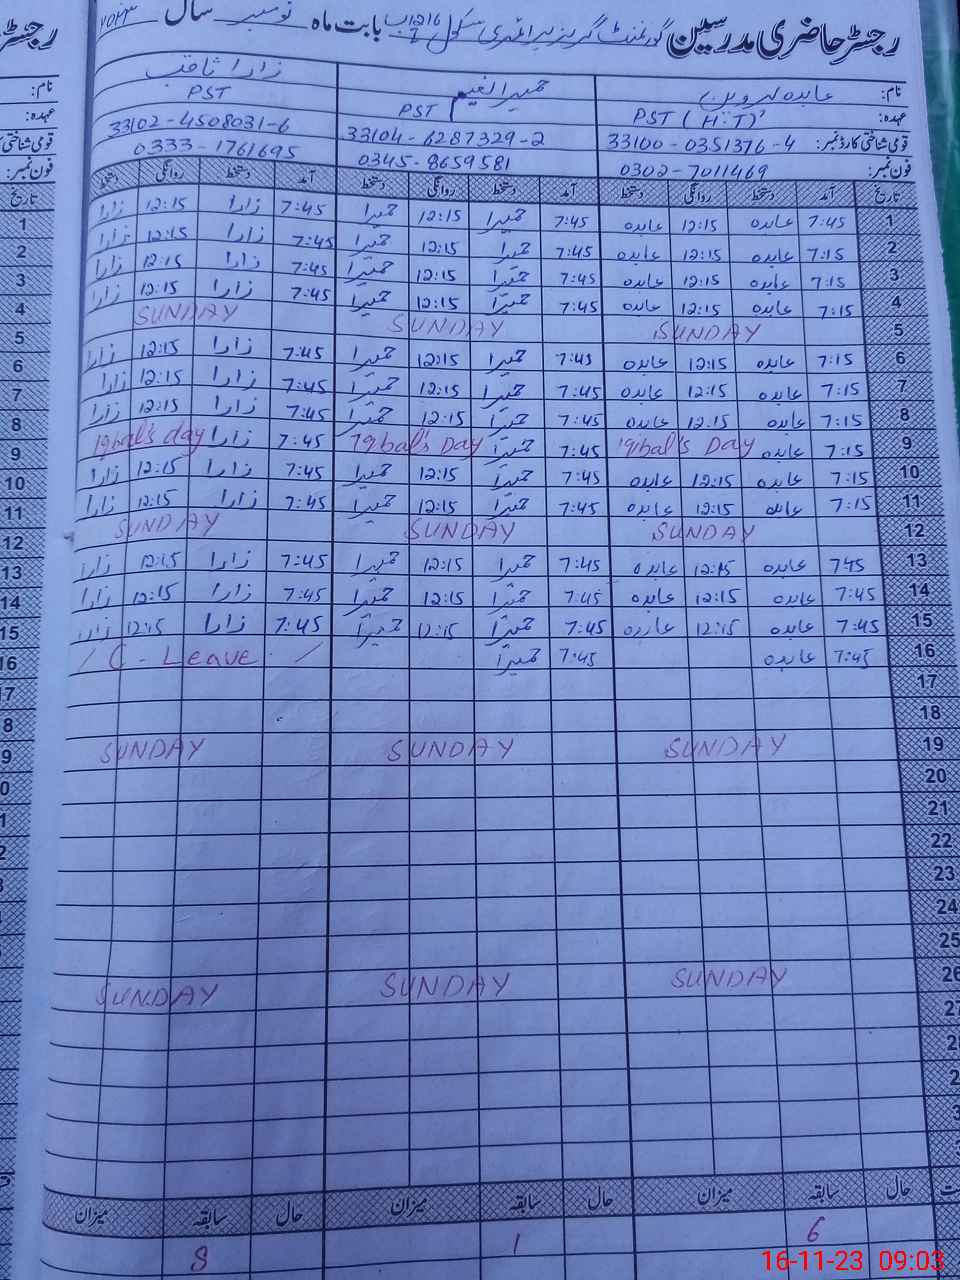 رجسٹر حاضری مدرسین گورنمنٹ گرلز پرائمری سکول بابت ماہ نومبر سال ۲۰۲۳
نام: عابدہ پروین حمیرا نعیم زارا ثاقب
عہدہ: PST (H.T) PST PST
قومی شناختی کارڈ نمبر: 33100-0351376-4 33104-6287329-2 33102-4508031-6
فون نمبر: 0302-7011469 0345-8659581 0333-1761695
تاریخ آمد دستخط روانگی دستخط آمد دستخط روانگی دستخط آمد دستخط روانگی دستخط
1 7:45 عابدہ 12:15 عابدہ 7:45 حمیرا 12:15 حمیرا 7:45 زارا 12:15 زارا
2 7:15 عابدہ 12:15 عابدہ 7:45 حمیرا 12:15 حمیرا 7:45 زارا 12:15 زارا
3 7:15 عابدہ 12:15 عابدہ 7:45 حمیرا 12:15 حمیرا 7:45 زارا 12:15 زارا
4 7:15 عابدہ 12:15 عابدہ 7:45 حمیرا 12:15 حمیرا 7:45 زارا 12:15 زارا
5 SUNDAY SUNDAY SUNDAY
6 7:15 عابدہ 12:15 عابدہ 7:45 حمیرا 12:15 حمیرا 7:45 زارا 12:15 زارا
7 7:15 عابدہ 12:15 عابدہ 7:45 حمیرا 12:15 حمیرا 7:45 زارا 12:15 زارا
8 7:15 عابدہ 12:15 عابدہ 7:45 حمیرا 12:15 حمیرا 7:45 زارا 12:15 زارا
9 7:15 عابدہ Iqbal's Day 7:45 حمیرا Iqbal's Day 7:45 زارا Iqbal's day
10 7:15 عابدہ 12:15 عابدہ 7:45 حمیرا 12:15 حمیرا 7:45 زارا 12:15 زارا
11 7:15 عابدہ 12:15 عابدہ 7:45 حمیرا 12:15 حمیرا 7:45 زارا 12:15 زارا
12 SUNDAY SUNDAY SUNDAY
13 745 عابدہ 12:15 عابدہ 7:45 حمیرا 12:15 حمیرا 7:45 زارا 12:15 زارا
14 7:45 عابدہ 12:15 عابدہ 7:45 حمیرا 12:15 حمیرا 7:45 زارا 12:15 زارا
15 7:45 عابدہ 12:15 عابدہ 7:45 حمیرا 12:15 حمیرا 7:45 زارا 12:15 زارا
16 7:45 عابدہ 7:45 حمیرا / C - Leave /
17
18
19 SUNDAY SUNDAY SUNDAY
20
21
22
23
24
25
26 SUNDAY SUNDAY SUNDAY
27
حال سابقہ میزان حال سابقہ میزان حال سابقہ میزان
6 1 8
16-11-23 09:03